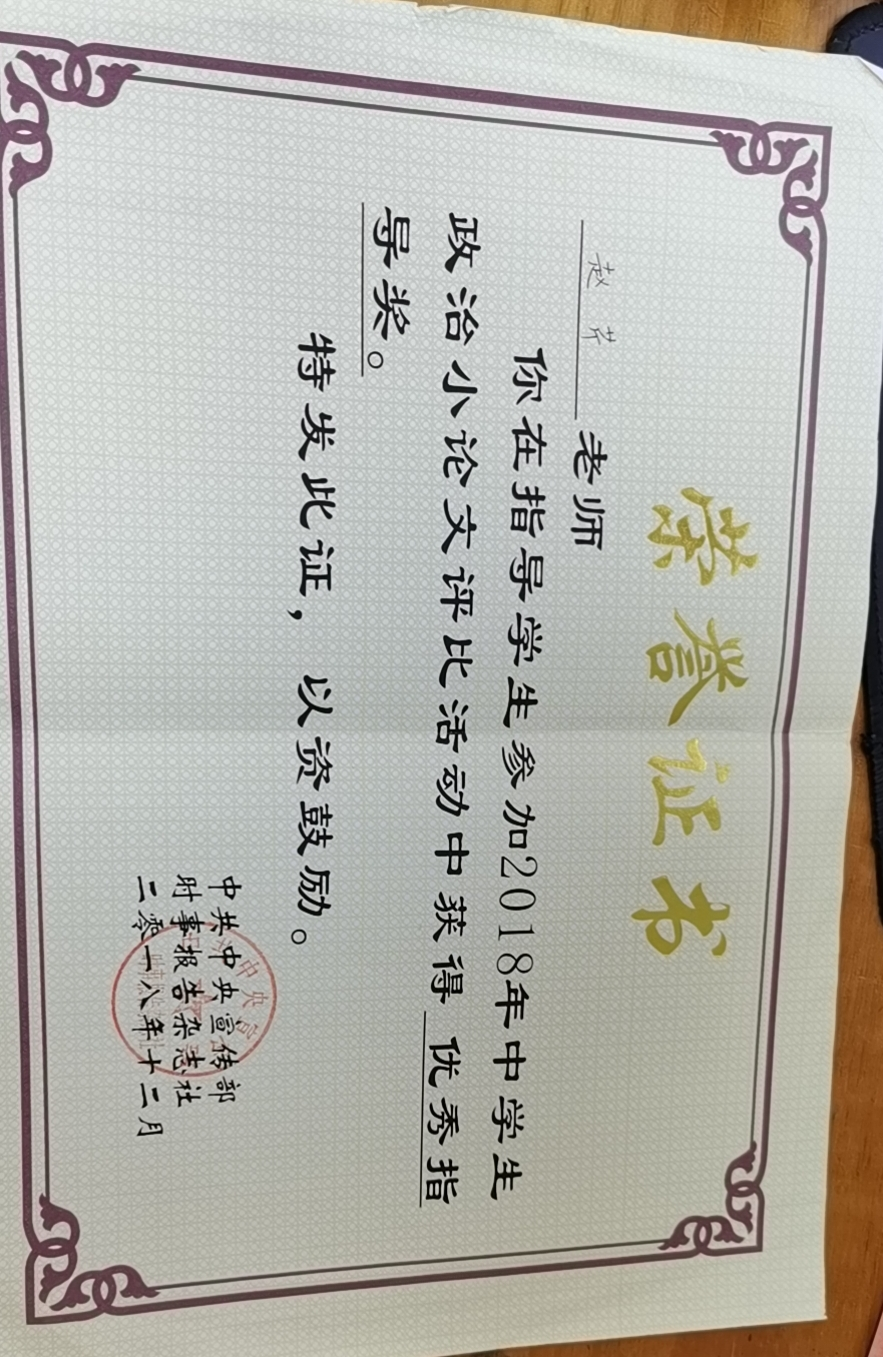 荣誉证书
赵芹 老师
你在指导学生参加2018年中学生
政治小论文评比活动中获得 优秀指
导奖。
特发此证，以资鼓励。
中共中央宣传部
时事报告杂志社
二零一八年十二月